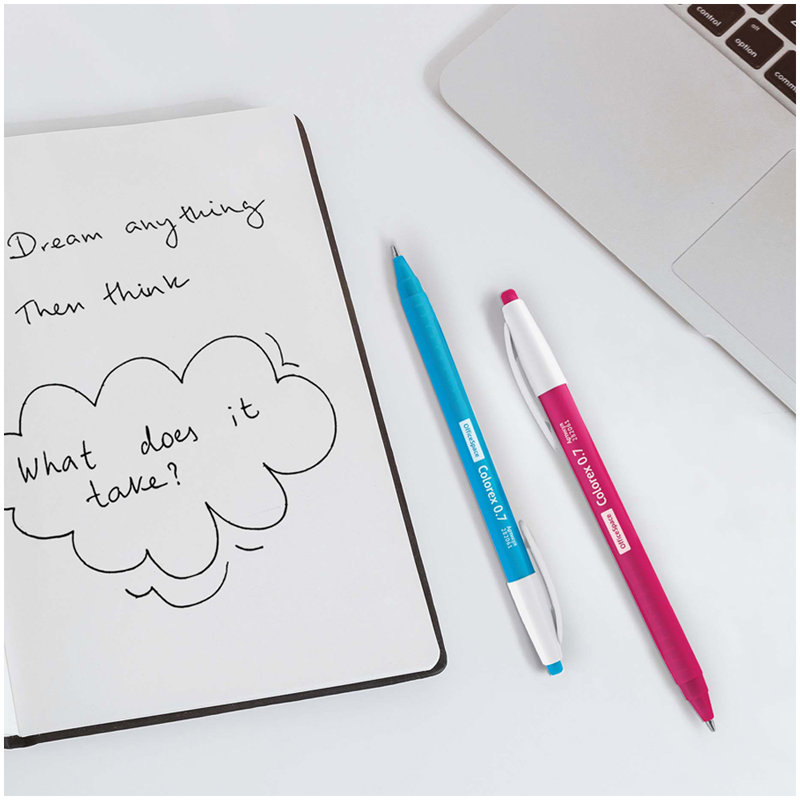 Dream anything
Then think
What does it
take?
OfficeSpace
Colorex 0.7
Артикул
282061
Артикул
282061
Colorex 0.7
OfficeSpace
control
alt
option